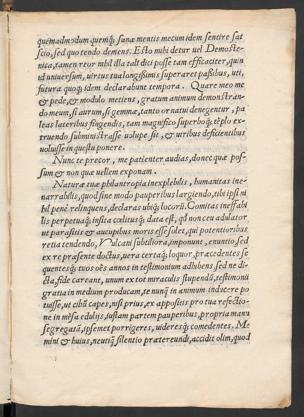 quemadmodum quemq́; sanæ mentis mecum idem sentire sat
scio, sed quo tendo demens. Esto mihi detur uel Demosthe-
nica, tamen rhetor nihil illa tali dici posse tam efficaciter, quin
ad uniuersum, uirtus tua longissimis superaret passibus, uti,
futura quoq́; idem declarabunt tempora. Quare meo me
& pede, & modulo metiens, gratum animum demonstran-
do meum, si aurum, si gemmæ, tanti ornatui denegentur, pa-
leas lateribus fingendis, tam magnifico superboq́; templo ex-
truendo subministrasse uolupe sit, & uiribus deficientibus
uoluisse in questu ponere.
Nunc te precor, me patienter audias, donec quæ pos-
sum & non quæ uellem exponam.
Naturæ tuæ philantropia inexplebilis, humanitas ine-
narrabilis, quod sine modo pauperibus largiendo, tibi ipsi ni
hil pene relinquens, declaras ubiq́; locorũ. Comitas ineffabi
lis perpetuaq́; insita cœlitusq́; data est, qd̃ non ceu adulator
ut parasitis & aucupibus moris esse solet, qui potentioribus
retia tendendo, Vulcani subtiliora, imponunt, enuntio, sed
ex re præsente doctus, uera certaq́; loquor, præcedentes se
quentesq́; tuos oẽs annos in testimonium adhibens, sed ne di-
cta, fide careant, unum ex tot miraculis stupendũ, testimonij
gratia in medium producam, te nunq̃ in animum inducere po
tuisse, ut cibũ capes, nisi prius, ex appositis pro tua refectio-
ne in mẽsa edulijs, iustam partem pauperibus, propria manu
segregatã, ipsemet porrigeres, uideresq́; comedentes. Me
mini & huius, neutiq̃ silentio prætereundi, accidit olim, quod